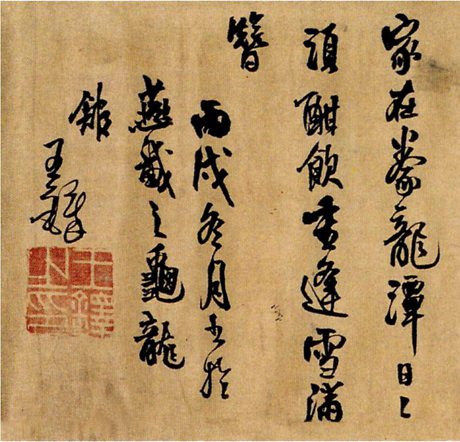 家在豢龍潭日〻
須酣飲重逢雪滿
簪
丙戌冬月書於
燕畿之龜龍
館
王鐸
王鐸之印